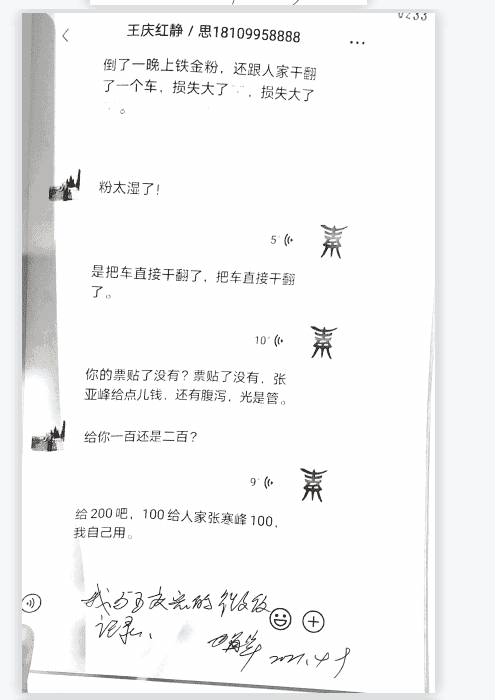 0233
王庆红静 / 思18109958888
...
倒了一晚上铁金粉，还跟人家干翻
了一个车，损失大了，损失大了
。
粉太湿了！
5"
是把车直接干翻了，把车直接干翻
了。
10"
你的票贴了没有？票贴了没有，张
亚峰给点儿钱，还有腹泻，光是管。
给你一百还是二百？
9"
给200吧，100给人家张寒峰100，
我自己用。
我与王庆红的微信
记录.